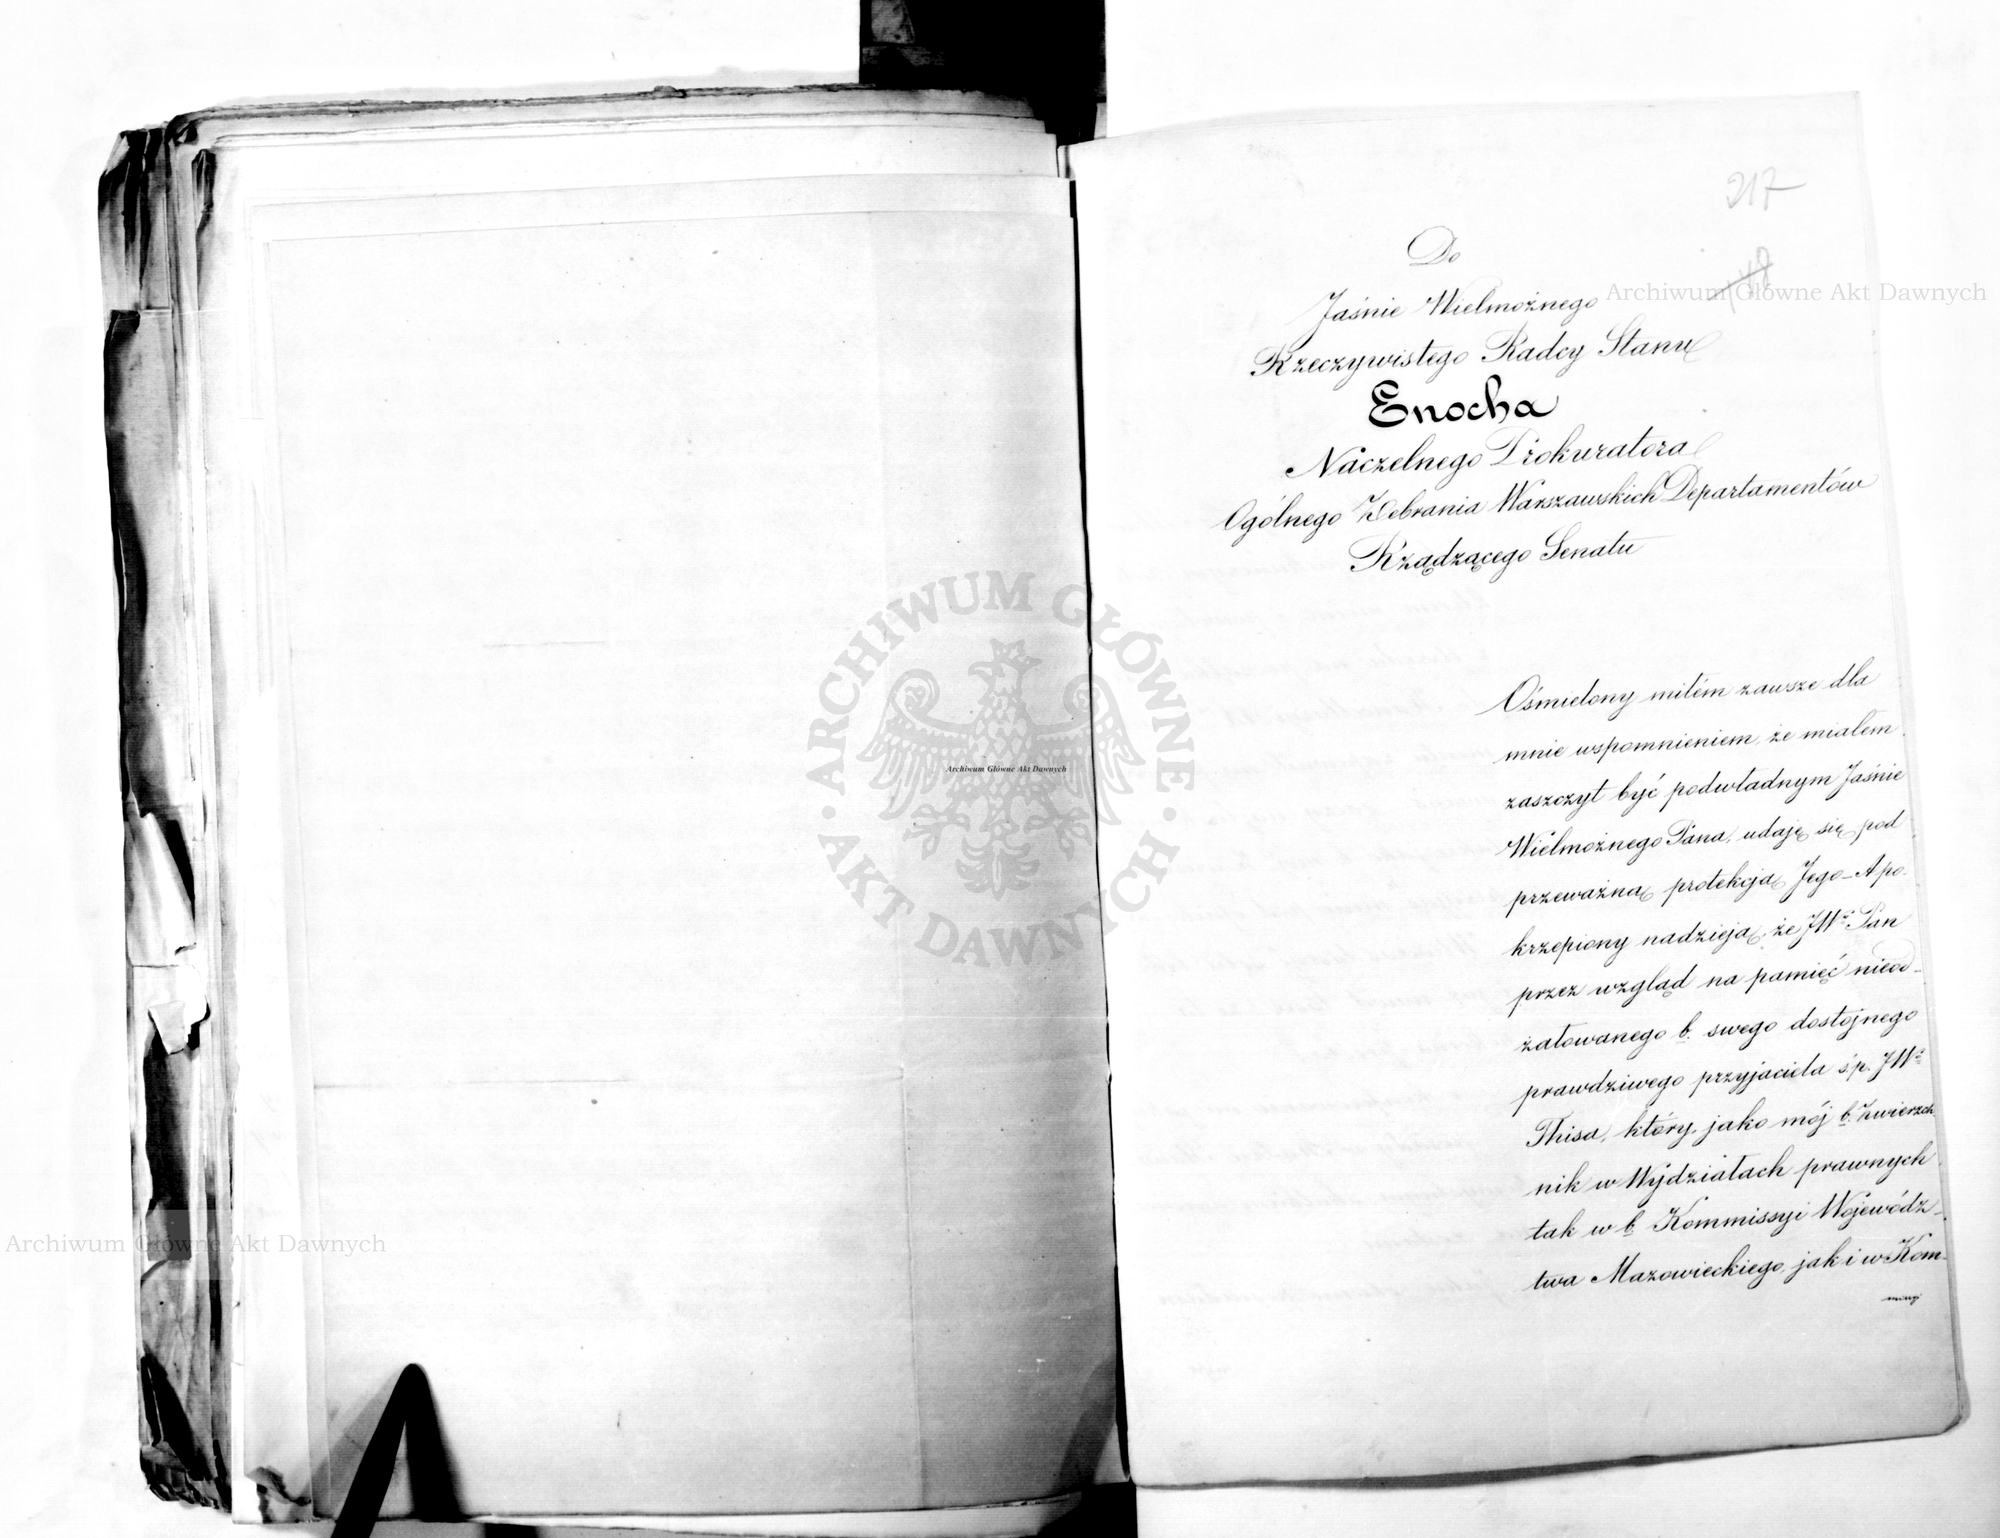 217
Do
Jaśnie Wielmożnego
Rzeczywistego Radcy Stanu
Enocha
Naczelnego Prokuratora
Ogólnego Zebrania Warszawskich Departamentów
Rządzącego Senatu
Ośmielony miłém zawsze dla
mnie wspomnieniem, że miałem
zaszczyt być podwładnym Jaśnie
Wielmożnego Pana, udaję się pod
przeważną protekcją Jego – A po-
krzepiony nadzieją, że JWny Pan
przez wzgląd na pamięć nieod-
żałowanego b. swego dostojnego
prawdziwego przyjaciela ś.p. JWo
Thisa, który, jako mój b. Zwierzch
nik w Wydziałach prawnych
tak w b. Kommissyi Wojewódz-
twa Mazowieckiego, jak i w Kom-
missyi
Archiwum Główne Akt Dawnych
Archiwum Główne Akt Dawnych
Archiwum Główne Akt Dawnych
ARCHIWUM GŁÓWNE · AKT DAWNYCH ·